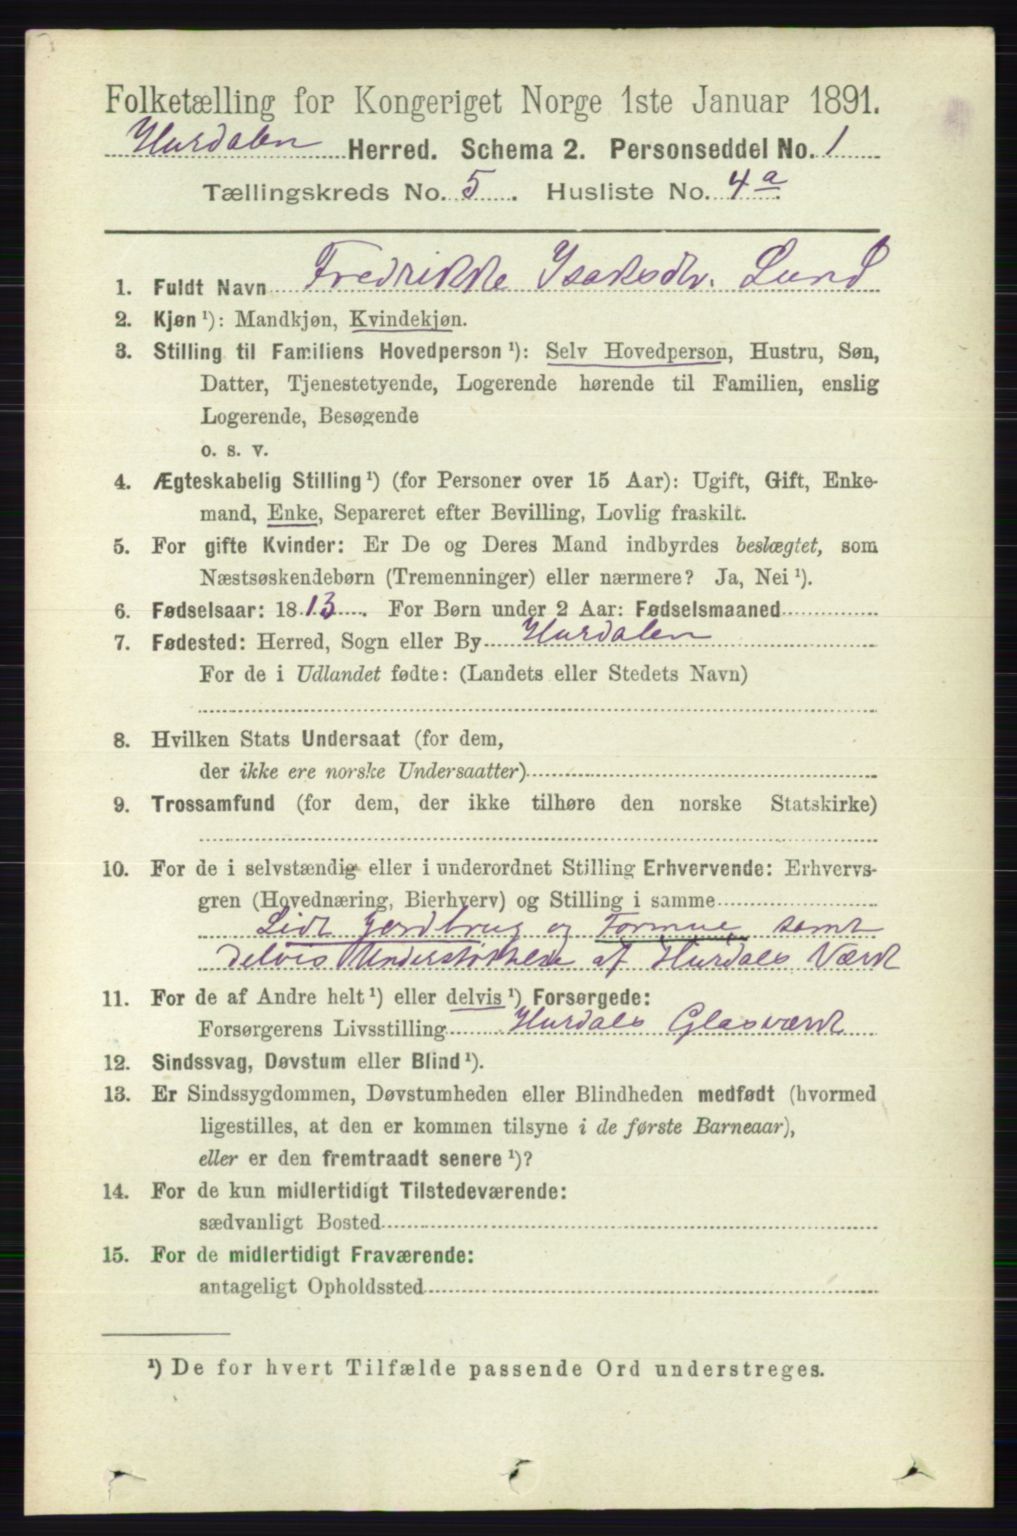 Folketælling for Kongeriget Norge 1ste Januar 1891.
Hurdalen Herred. Schema 2. Personseddel No. 1
Tællingskreds No. 5. Husliste No. 4a
1. Fuldt Navn Fredrikke Isaksdtr. Lund
2. Kjøn ¹): Mandkjøn, Kvindekjøn.
3. Stilling til Familiens Hovedperson ¹): Selv Hovedperson, Hustru, Søn,
Datter, Tjenestetyende, Logerende hørende til Familien, enslig
Logerende, Besøgende
o. s. v.
4. Ægteskabelig Stilling ¹) (for Personer over 15 Aar): Ugift, Gift, Enke-
mand, Enke, Separeret efter Bevilling, Lovlig fraskilt.
5. For gifte Kvinder: Er De og Deres Mand indbyrdes beslægtet, som
Næstsøskendebørn (Tremenninger) eller nærmere? Ja, Nei ¹).
6. Fødselsaar: 1813. For Børn under 2 Aar: Fødselsmaaned
7. Fødested: Herred, Sogn eller By Hurdalen
For de i Udlandet fødte: (Landets eller Stedets Navn)
8. Hvilken Stats Undersaat (for dem,
der ikke ere norske Undersaatter)
9. Trossamfund (for dem, der ikke tilhøre den norske Statskirke)
10. For de i selvstændig eller i underordnet Stilling Erhvervende: Erhvervs-
gren (Hovednæring, Bierhverv) og Stilling i samme
Lidt Jordbrug og Formue samt
delvis Understøttelse af Hurdals Værk
11. For de af Andre helt ¹) eller delvis ¹) Forsørgede:
Forsørgerens Livsstilling Hurdals Glasværk
12. Sindssvag, Døvstum eller Blind ¹).
13. Er Sindssygdommen, Døvstumheden eller Blindheden medfødt (hvormed
ligestilles, at den er kommen tilsyne i de første Barneaar),
eller er den fremtraadt senere ¹)?
14. For de kun midlertidigt Tilstedeværende:
sædvanligt Bosted
15. For de midlertidigt Fraværende:
antageligt Opholdssted
¹) De for hvert Tilfælde passende Ord understreges.